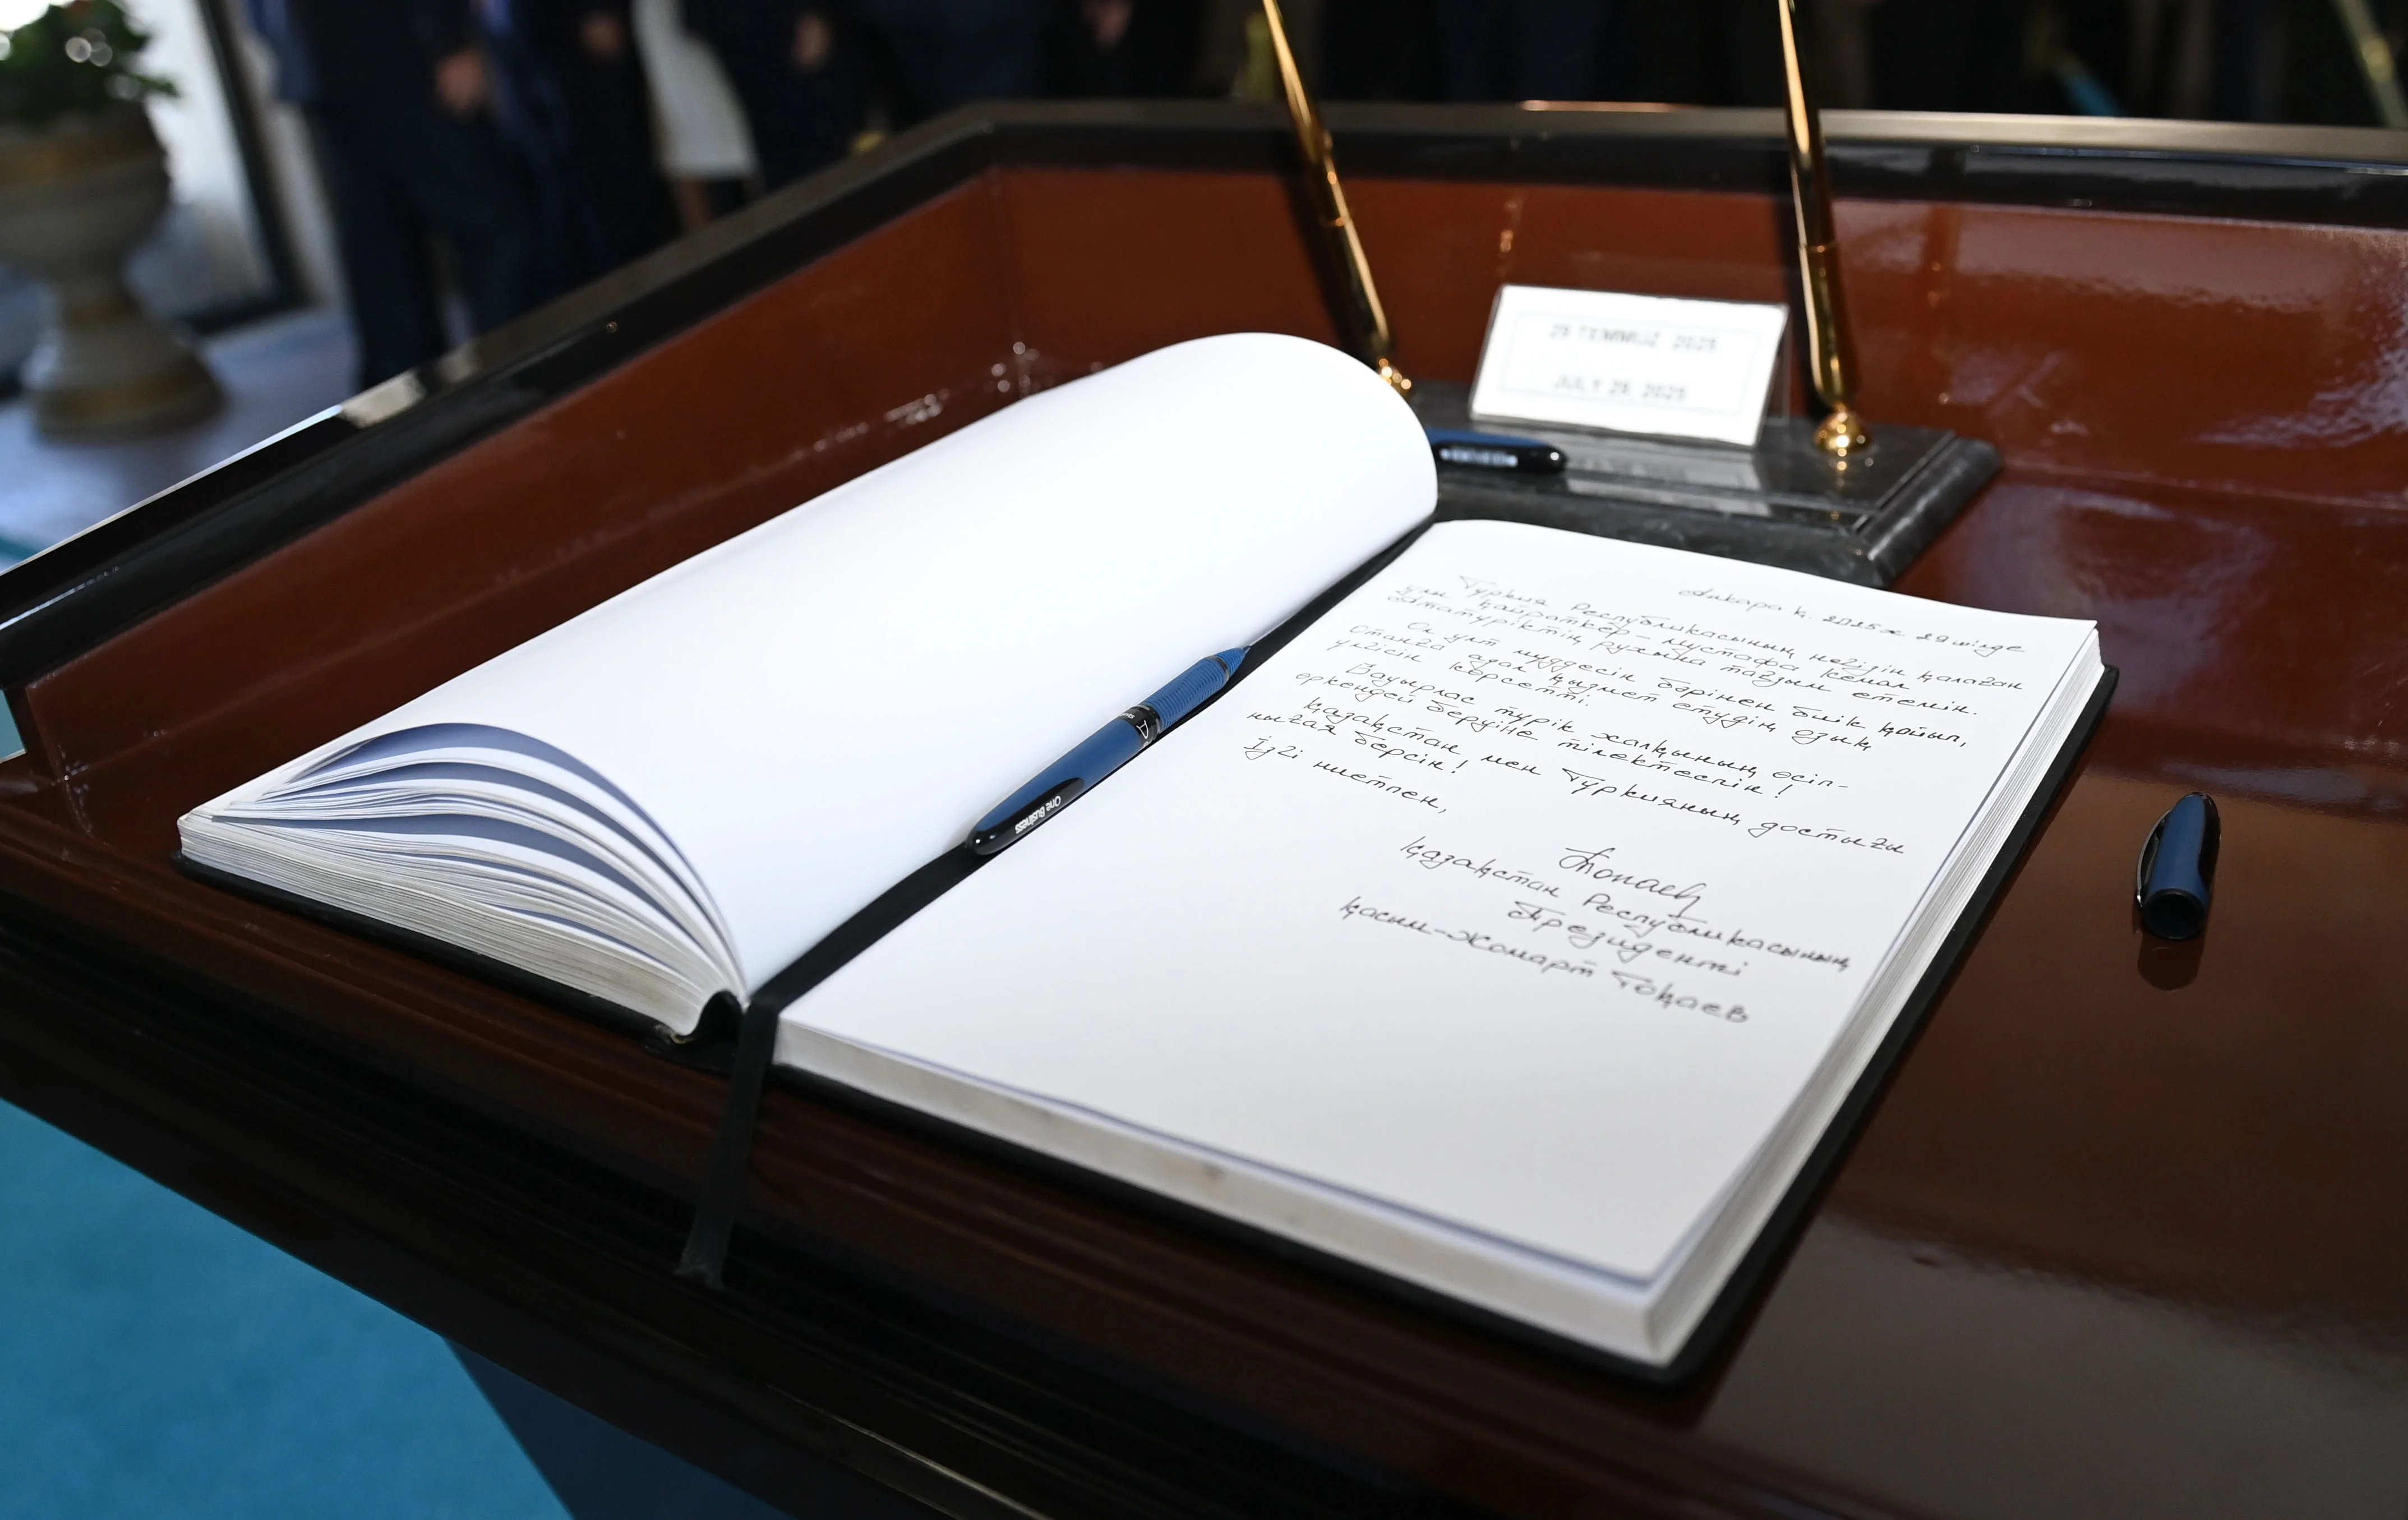 29 TEMMUZ 2025
JULY 29, 2025
Анкара қ. 2025ж 29 шілде
Түркия Республикасының негізін қалаған
ұлы қайраткер – Мұстафа Кемал
Ататүріктің рухына тағзым етемін.
Ол ұлт мүддесін бәрінен биік қойып,
Отанға адал қызмет етудің озық
үлгісін көрсетті.
Бауырлас түрік халқының өсіп-
өркендей беруіне тілектеспін!
Қазақстан мен Түркияның достығы
нығая берсін!
Ізгі ниетпен,
Қазақстан Республикасының
Президенті
Қасым-Жомарт Тоқаев
One Business